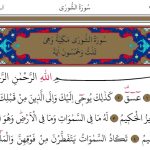 سُورَةُ الشُّورَى
سُورَةُ الشُّورَى مَكِّيَّةٌ وَهِيَ
ثَلٰثٌ وَخَمْسُونَ اٰيَةً
اللهِ الرَّحْمٰنِ الرَّ
عٓسٓقٓ كَذٰلِكَ يُوحٖٓي اِلَيْكَ وَاِلَى الَّذٖينَ مِنْ قَبْلِكَ
الْحَكٖيمُ لَهُ مَا فِي السَّمٰوَاتِ وَمَا فِي الْاَرْضِ
تَكَادُ السَّمٰوَاتُ يَتَفَطَّرْنَ مِنْ فَوْقِهِنَّ